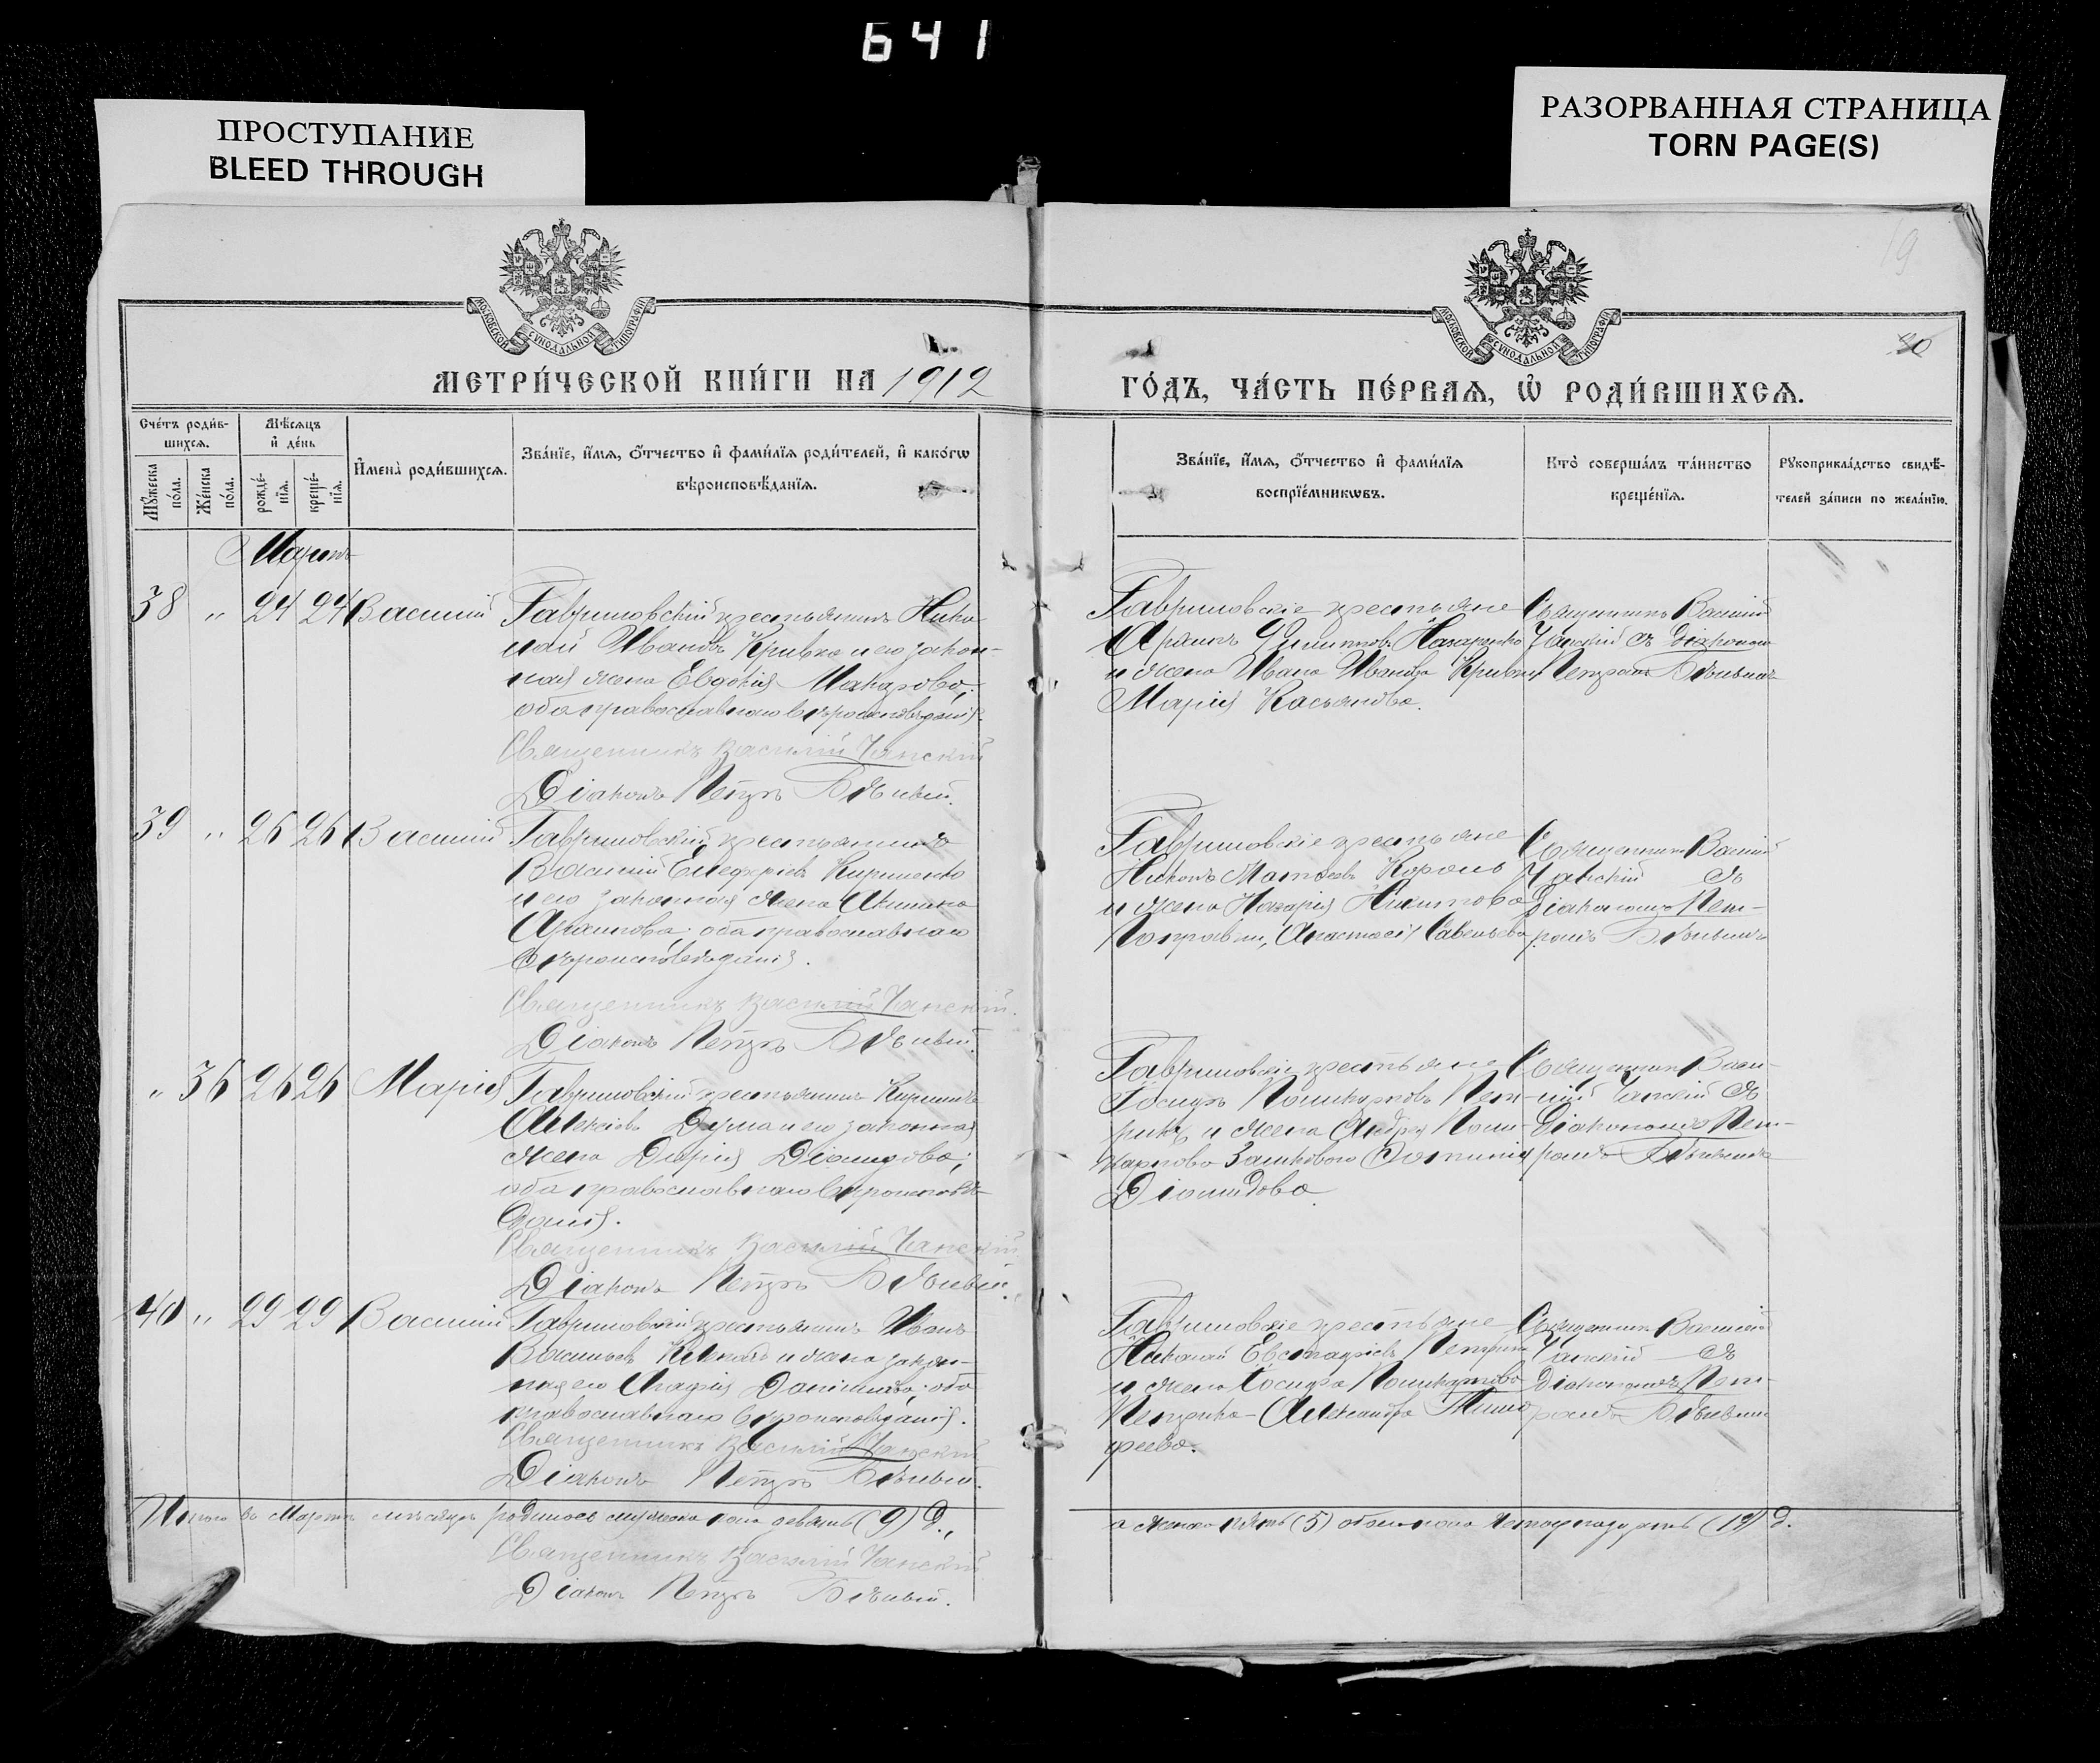 641
ПРОСТУПАНИЕ
BLEED THROUGH
РАЗОРВАННАЯ СТРАНИЦА
TORN PAGE(S)
19
30
МОСКОВСКОЙ СѴНОДАЛЬНОЙ ТИПОГРАФІИ
МОСКОВСКОЙ СѴНОДАЛЬНОЙ ТИПОГРАФІИ
МЕТРИ́ЧЕСКОЙ КНИ́ГИ НА 1912
ГО́ДЪ, ЧА́СТЬ ПЕ́РВАѦ, Ѡ҆ РОДИ́ВШИХСѦ.
Сче́тъ роди́в-
шихсѧ.
Мꙋ́жеска по́ла.
Же́нска по́ла.
Мѣ́сѧцъ
и҆ де́нь
рожде́-
нїѧ.
креще́-
нїѧ.
И҆мена̀ роди́вшихсѧ.
Зва́нїе, и҆́мѧ, ѻ҆́тчество и҆ фами́лїѧ роди́телей, и҆ како́гѡ
вѣроисповѣ́данїѧ.
Зва́нїе, и҆́мѧ, ѻ҆́тчество и҆ фами́лїѧ
воспрїе́мникѡвъ.
Кто̀ соверша́лъ та́инство
креще́нїѧ.
Рꙋкоприкла́дство свидѣ́-
телей за́писи по жела́нїю.
Мартъ
38 " 24 24 Василій
Гавриловскій крестьянинъ Нико-
лай Ивановъ Кривко и его закон-
ная жена Евдокія Макарова;
оба православнаго вѣроисповѣданія.
Священникъ Василій Чанскій
Діаконъ Петръ Бѣлый.
Гавриловскіе крестьяне
Филипповъ Назаренко
и жена Ивана Иванова
Марія Касьянова.
Священникъ Василій
Чанскій съ Діакономъ
Петромъ Бѣлымъ
39 " 26 26 Василій
Гавриловскій крестьянинъ
Василій Елефріевъ Кириленко
и его законная жена Акилина
оба православнаго
вѣроисповѣданія.
Священникъ Василій Чанскій.
Діаконъ Петръ Бѣлый.
Гавриловскіе крестьяне
Никонъ Матвѣевъ Король
и жена Назарія Никитова
Анастасія Савельева
Священникъ Василій
Чанскій съ
Діакономъ Пет-
ромъ Бѣлымъ
" 36 26 26 Марія
Гавриловскій крестьянинъ Кириллъ
Алексіевъ Дума и его законная
жена Дарія Діомидова;
оба православнаго вѣроисповѣ-
данія.
Священникъ Василій Чанскій
Діаконъ Петръ Бѣлый.
Гавриловскіе крестьяне
Іосифъ Поликарповъ Пет-
рикъ и жена Андрея Поли-
карпова
Діомидова.
Священникъ Васи-
лій Чанскій съ
Діакономъ Пет-
ромъ Бѣлымъ
40 " 29 29 Василій
Гавриловскій крестьянинъ Иванъ
Васильевъ и жена закон-
ная его Агафія Даніилова; оба
православнаго вѣроисповѣданія.
Священникъ Василій Чанскій
Діаконъ Петръ Бѣлый.
Гавриловскіе крестьяне
Николай Евстафіевъ
и жена Іосифа Поликарпова
Александра Тимо
феева.
Священникъ Василій
Чанскій съ
Діакономъ Пет-
ромъ Бѣлымъ
Итого въ Мартѣ мѣсяцѣ родилось мужеска пола девять (9) д.,
а женска пять (5) обоего пола четырнадцать (14) д.
Священникъ Василій Чанскій
Діаконъ Петръ Бѣлый.